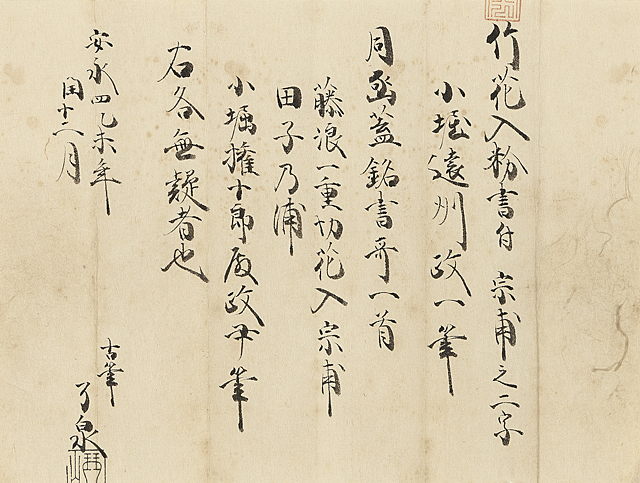 竹花入粉書付 宗甫之二字
小堀遠州政一筆
同函蓋銘書哥一首
藤浪一重切花入 宗甫
田子乃浦
小堀権十郎殿政尹筆
右各無疑者也
安永四乙未年
閏十二月
古筆
了泉